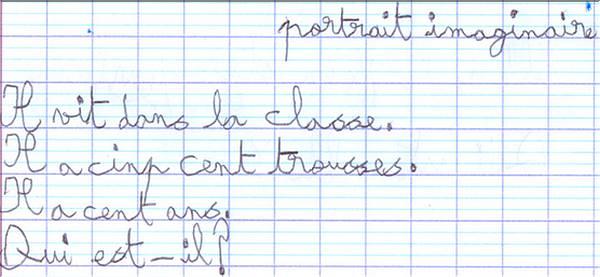 portrait imaginaire
Il vit dans la classe.
Il a cinp cent trousses.
Il a cent ans.
Qui est-il?